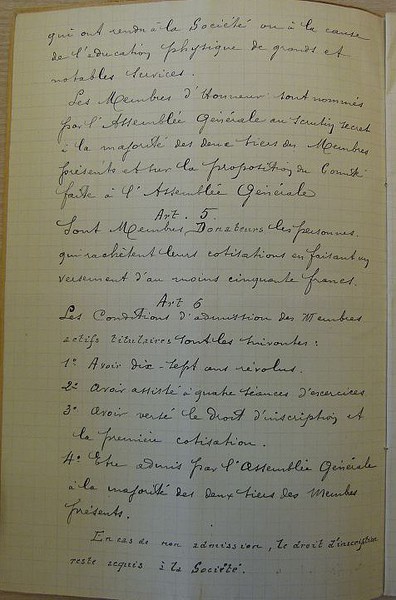 qui ont rendu à la Société ou à la cause
de l'éducation physique de grands et
notables services.
Les Membres d'Honneur sont nommés
par l'Assemblée Générale au scrutin secret
à la majorité des deux tiers des Membres
présents et sur la proposition du Comité
faite à l'Assemblée Générale
Art. 5.
Sont Membres Donateurs les personnes
qui rachètent leurs cotisations en faisant un
versement d'au moins cinquante francs.
Art 6
Les Conditions d'admission des Membres
actifs titulaires sont les suivantes :
1º Avoir dix-sept ans révolus.
2º Avoir assisté à quatre séances d'exercices
3º Avoir versé le droit d'inscription et
la première cotisation.
4º Etre admis par l'Assemblée Générale
à la majorité des deux tiers des Membres
présents.
En cas de non admission, le droit d'inscription
reste acquis à la Société.